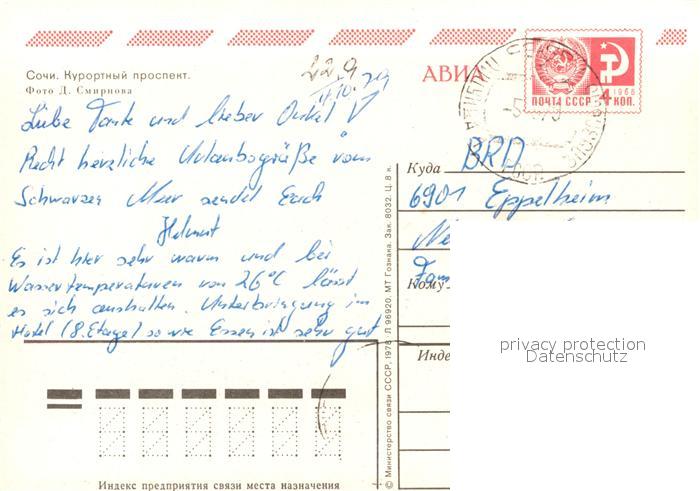 Сочи. Курортный проспект.
Фото Д. Смирнова
22.9
АВИА
ПОЧТА СССР
4 КОП.
1966
Liebe Tante und lieber Onkel
Recht herzliche Urlaubsgrüße vom
Schwarzen Meer sendet Euch
Helmut
Es ist hier sehr warm und bei
Wassertemperaturen von 26°C lässt
es sich aushalten. Unterbringung im
Hotel (8.Etage) sowie Essen ist sehr gut
Куда
BRD
6901 Eppelheim
Fam
Кому
Инде
privacy protection
Datenschutz
© Министерство связи СССР, 1978. Л 96920. МТ Гознака. Зак. 8032. Ц. 8 к.
Индекс предприятия связи места назначения